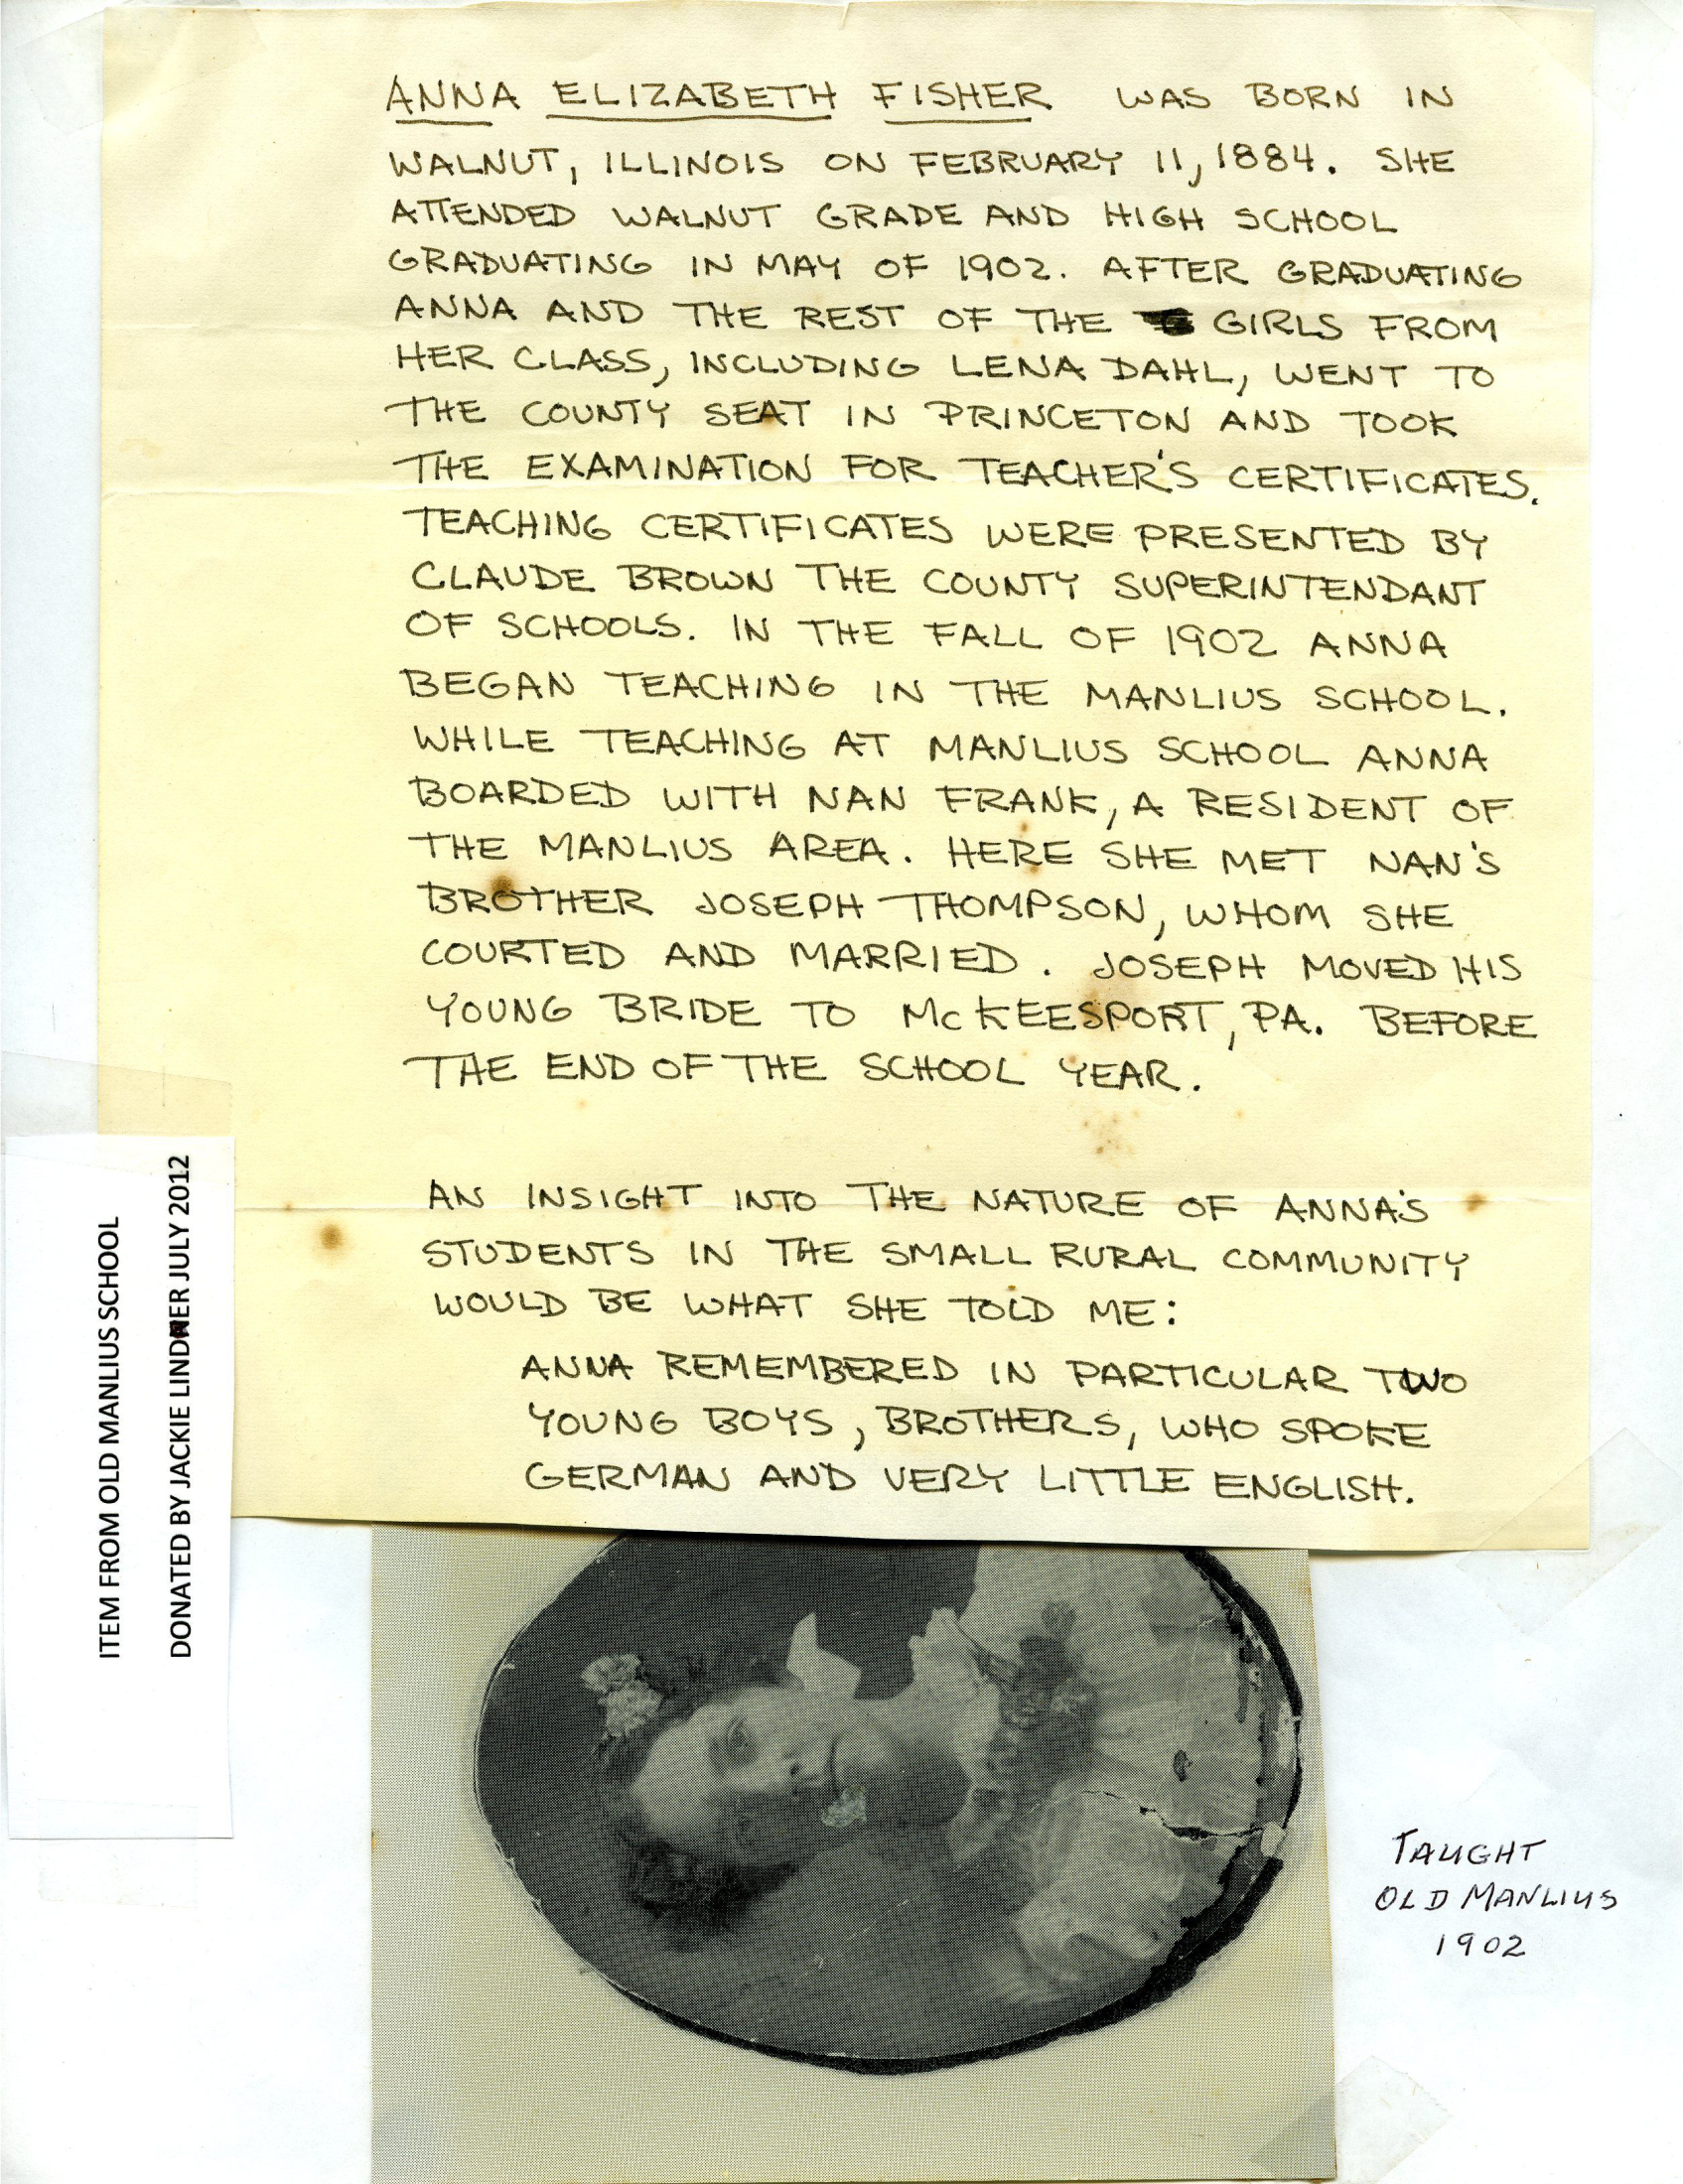 ANNA ELIZABETH FISHER WAS BORN IN
WALNUT, ILLINOIS ON FEBRUARY 11, 1884. SHE
ATTENDED WALNUT GRADE AND HIGH SCHOOL
GRADUATING IN MAY OF 1902. AFTER GRADUATING
ANNA AND THE REST OF THE GIRLS FROM
HER CLASS, INCLUDING LENA DAHL, WENT TO
THE COUNTY SEAT IN PRINCETON AND TOOK
THE EXAMINATION FOR TEACHER'S CERTIFICATES.
TEACHING CERTIFICATES WERE PRESENTED BY
CLAUDE BROWN THE COUNTY SUPERINTENDANT
OF SCHOOLS. IN THE FALL OF 1902 ANNA
BEGAN TEACHING IN THE MANLIUS SCHOOL.
WHILE TEACHING AT MANLIUS SCHOOL ANNA
BOARDED WITH NAN FRANK, A RESIDENT OF
THE MANLIUS AREA. HERE SHE MET NAN'S
BROTHER JOSEPH THOMPSON, WHOM SHE
COURTED AND MARRIED. JOSEPH MOVED HIS
YOUNG BRIDE TO McKEESPORT, PA. BEFORE
THE END OF THE SCHOOL YEAR.
AN INSIGHT INTO THE NATURE OF ANNA'S
STUDENTS IN THE SMALL RURAL COMMUNITY
WOULD BE WHAT SHE TOLD ME:
ANNA REMEMBERED IN PARTICULAR TWO
YOUNG BOYS, BROTHERS, WHO SPOKE
GERMAN AND VERY LITTLE ENGLISH.
ITEM FROM OLD MANLIUS SCHOOL
DONATED BY JACKIE LINDNER JULY 2012
TAUGHT
OLD MANLIUS
1902